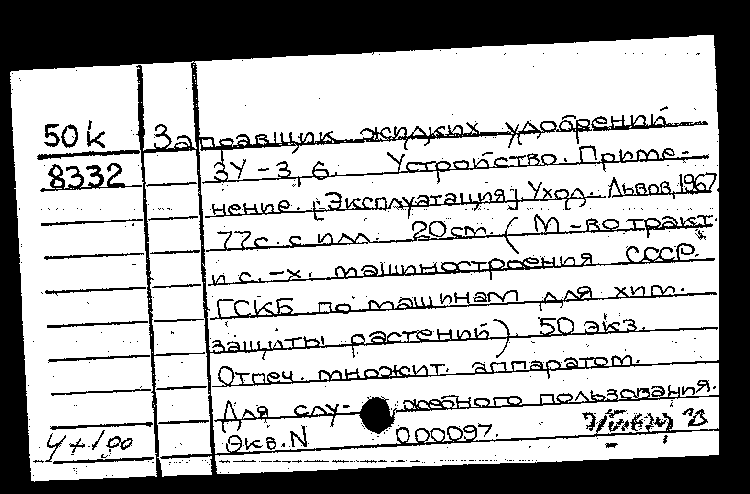 50к Заправщик жидких удобрений
8332 ЗУ-3,6. Устройство. Приме-
нение. [Эксплуатация]. Уход. Львов, 1967.
77с. с илл. 20см. (М-во тракт.
и с.-х. машиностроения СССР.
ГСКБ по машинам для хим.
защиты растений). 50 экз.
Отпеч. множит. аппаратом.
Для слу-жебного пользования.
Экз. N 000097.